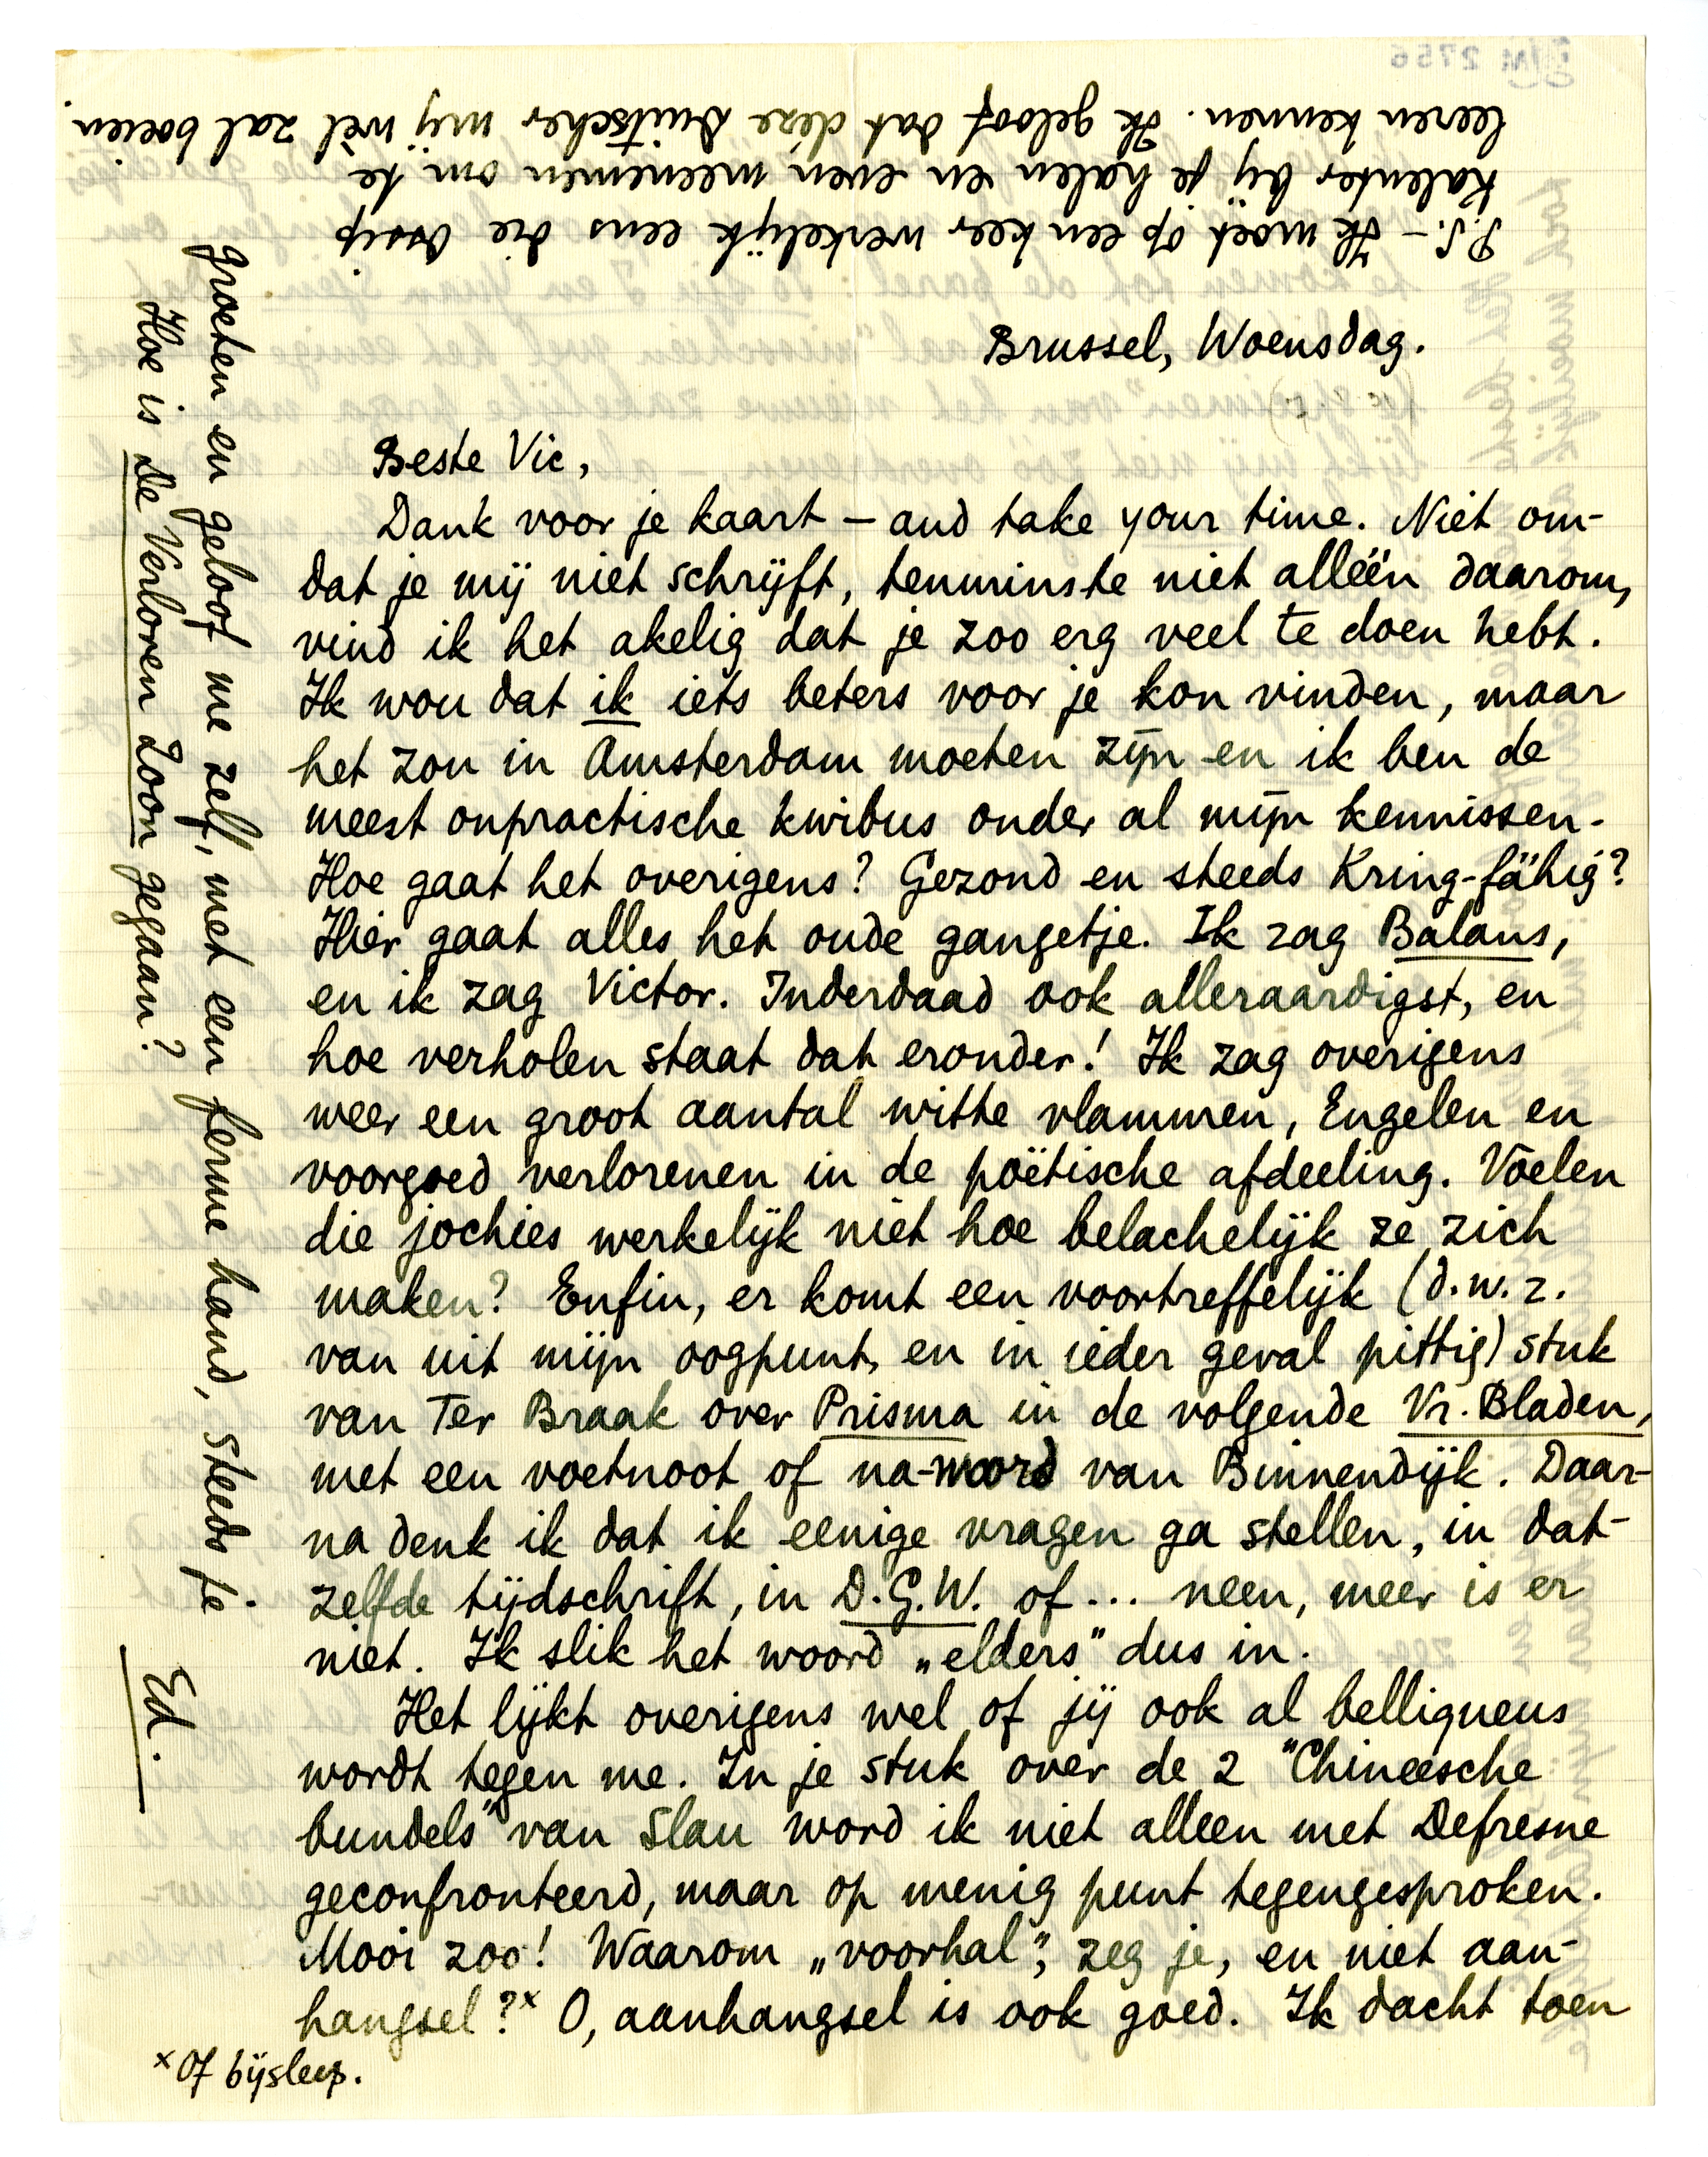 Brussel, Woensdag.
Beste Vic,
Dank voor je kaart – and take your time. Niet om-
dat je mij niet schrijft, tenminste niet alléén daarom,
vind ik het akelig dat je zoo erg veel te doen hebt.
Ik wou dat ik iets beters voor je kon vinden, maar
het zou in Amsterdam moeten zijn en ik ben de
meest onpractische kwibus onder al mijn kennissen.
Hoe gaat het overigens? Gezond en steeds Kring-fähig?
Hier gaat alles het oude gangetje. Ik zag Balans,
en ik zag Victor. Inderdaad ook alleraardigst, en
hoe verholen staat dat eronder! Ik zag overigens
weer een groot aantal witte vlammen, Engelen en
voorgoed verlorenen in de poëtische afdeeling. Voelen
die jochies werkelijk niet hoe belachelijk ze zich
maken? Enfin, er komt een voortreffelijk (d.w.z.
van uit mijn oogpunt, en in ieder geval pittig) stuk
van Ter Braak over Prisma in de volgende Vr. Bladen,
met een voetnoot of na-woord van Binnendijk. Daar-
na denk ik dat ik eenige vragen ga stellen, in dat-
zelfde tijdschrift, in D.G.W. of... neen, meer is er
niet. Ik slik het woord „elders” dus in.
Het lijkt overigens wel of jij ook al belliqueus
wordt tegen me. In je stuk over de 2 "Chineesche
bundels" van Slau word ik niet alleen met Defresne
geconfronteerd, maar op menig punt tegengesproken.
Mooi zoo! Waarom „voorhal”, zeg je, en niet aan-
hangsel?x O, aanhangsel is ook goed. Ik dacht toen
x Of bijsleep.
groeten en geloof me zelf, met een ferme hand, steeds je
Ed.
Hoe is De Verloren Zoon gegaan?
P.S. – Ik moet op een keer werkelijk eens die Ossip
Kalenter bij je halen en even meenemen om te
leeren kennen. Ik geloof dat déze Duitscher mij wèl zal boeien.